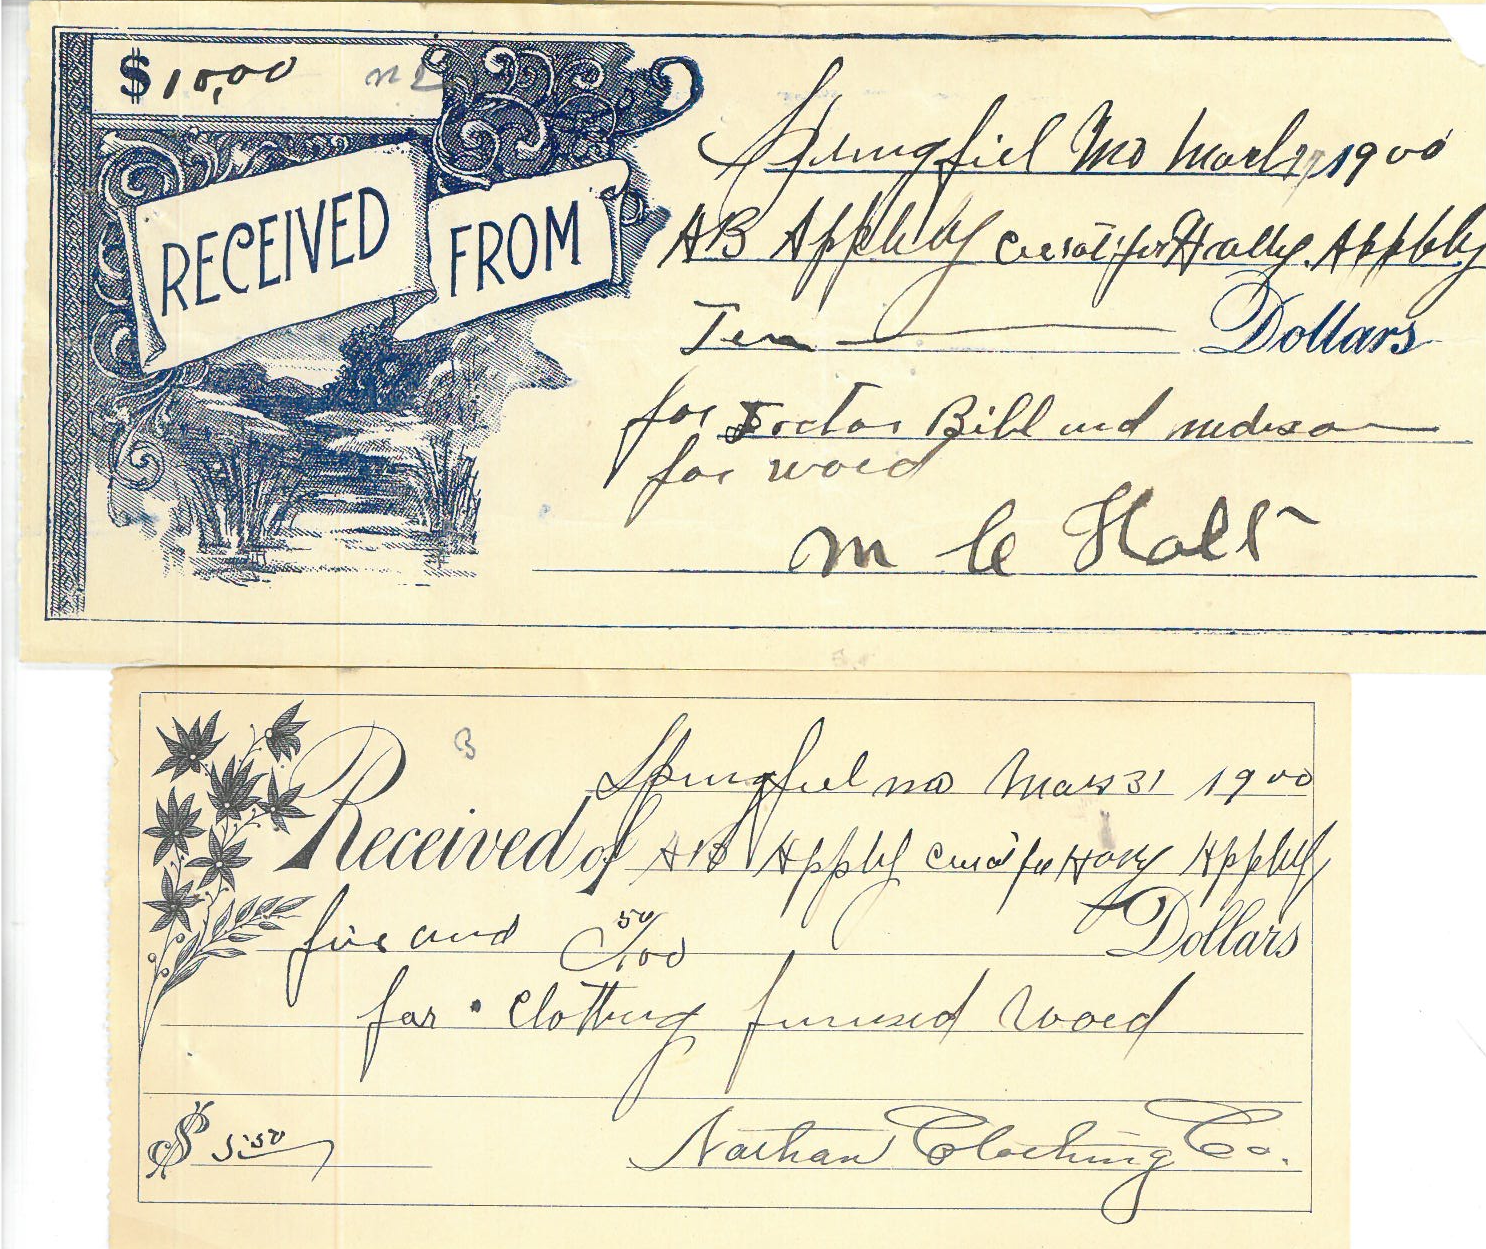 $10.00
Springfiel Mo March 1900
RECEIVED FROM AB Appleby for Harry Appleby
Ten Dollars
for Doctor Bill and
for word
M Holt
B
Springfiel mo Mar 31 1900
Received of AB Appleby for Harry Appleby
five and 50/100 Dollars
for Clothing word
$ 5.50 Nathan Clothing Co.